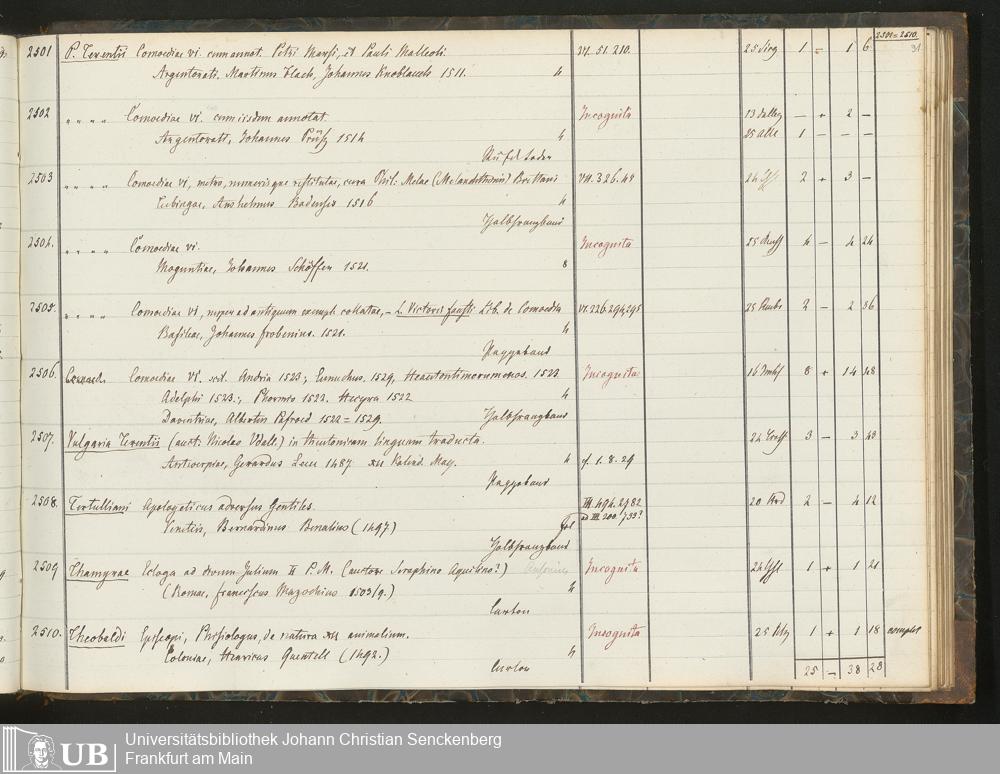 2501=2510.
31
2501 P. Terentii Comoediae vi. cum annot. Petri Marsi, et Pauli Malleoli. VI. 51. 210. 1 – 1 6
Argentorati. Martinus Flach, Johannes Knoblauch 1511. 4
2502 " " " " Comoediae vi. cum iisdem annotat. Incognita – + 2 –
Argentorati, Johannes Prüss 1514 4 1 – – –
2503 " " " " Comoediae vi, metro, numerisque restitutae, cura Phil: Melae (Melanchthonis) Brettani VII. 326. 49 2 + 3 –
Tubingae, Anshelmus Badensis 1516 4
Halbfranzband
2504. " " " " Comoediae vi. Incognita 4 – 4 24
Moguntiae, Johannes Schöffer 1521. 8
2505. " " " " Comoediae vi, nuper ad antiquum exempl. collatae, – L. Victoris fausti Lib. de Comoedia VI. 226. 294. 295 2 – 2 36
Basileae, Johannes frobenius. 1521. 4
Pappeband
2506. Comoediae vi. scil. Andria 1523; Eunuchus, 1529, Heautontimorumenos. 1523 Incognita 8 + 14 48
Adelphi 1523.; Phormio 1522. Hecyra 1522 4
Daventriae, Albertus Pafraed 1522 = 1529. Halbfranzband
2507. Vulgaria Terentii in theutonicam linguam traducta. 3 – 3 43
Antwerpiae, Gerardus Leeu 1487. xii Kalend. May. 4 cf. 1. 8. 29
Pappeband
2508. Tertulliani Apologeticus adversus Gentiles. III. 494. 2782 2 – 4 12
Venetiis, Bernardinus Benalius (1497) Fol
Halbfranzband
2509 Thamyrae Ecloga ad divum Julium II P. M. (auctore Seraphino Aquilino?) Incognita 1 + 1 21
(Romae, franciscus Mazochius 1503/9.) 4
Carton
2510. Theobaldi Episcopi, Phisiologus, de natura xii animalium. Incognita 1 + 1 18 complet
Coloniae, Henricus Quentell (1492.) 4
Carton
25 – 38 28
UB
Universitätsbibliothek Johann Christian Senckenberg
Frankfurt am Main